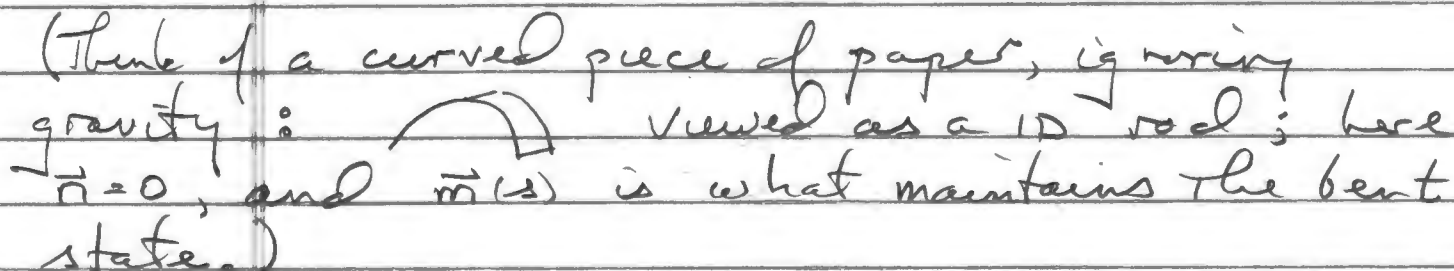 (Think of a curved piece of paper, ignoring
gravity: viewed as a 1D rod; here
n⃗=0, and m⃗(s) is what maintains the bent
state.)